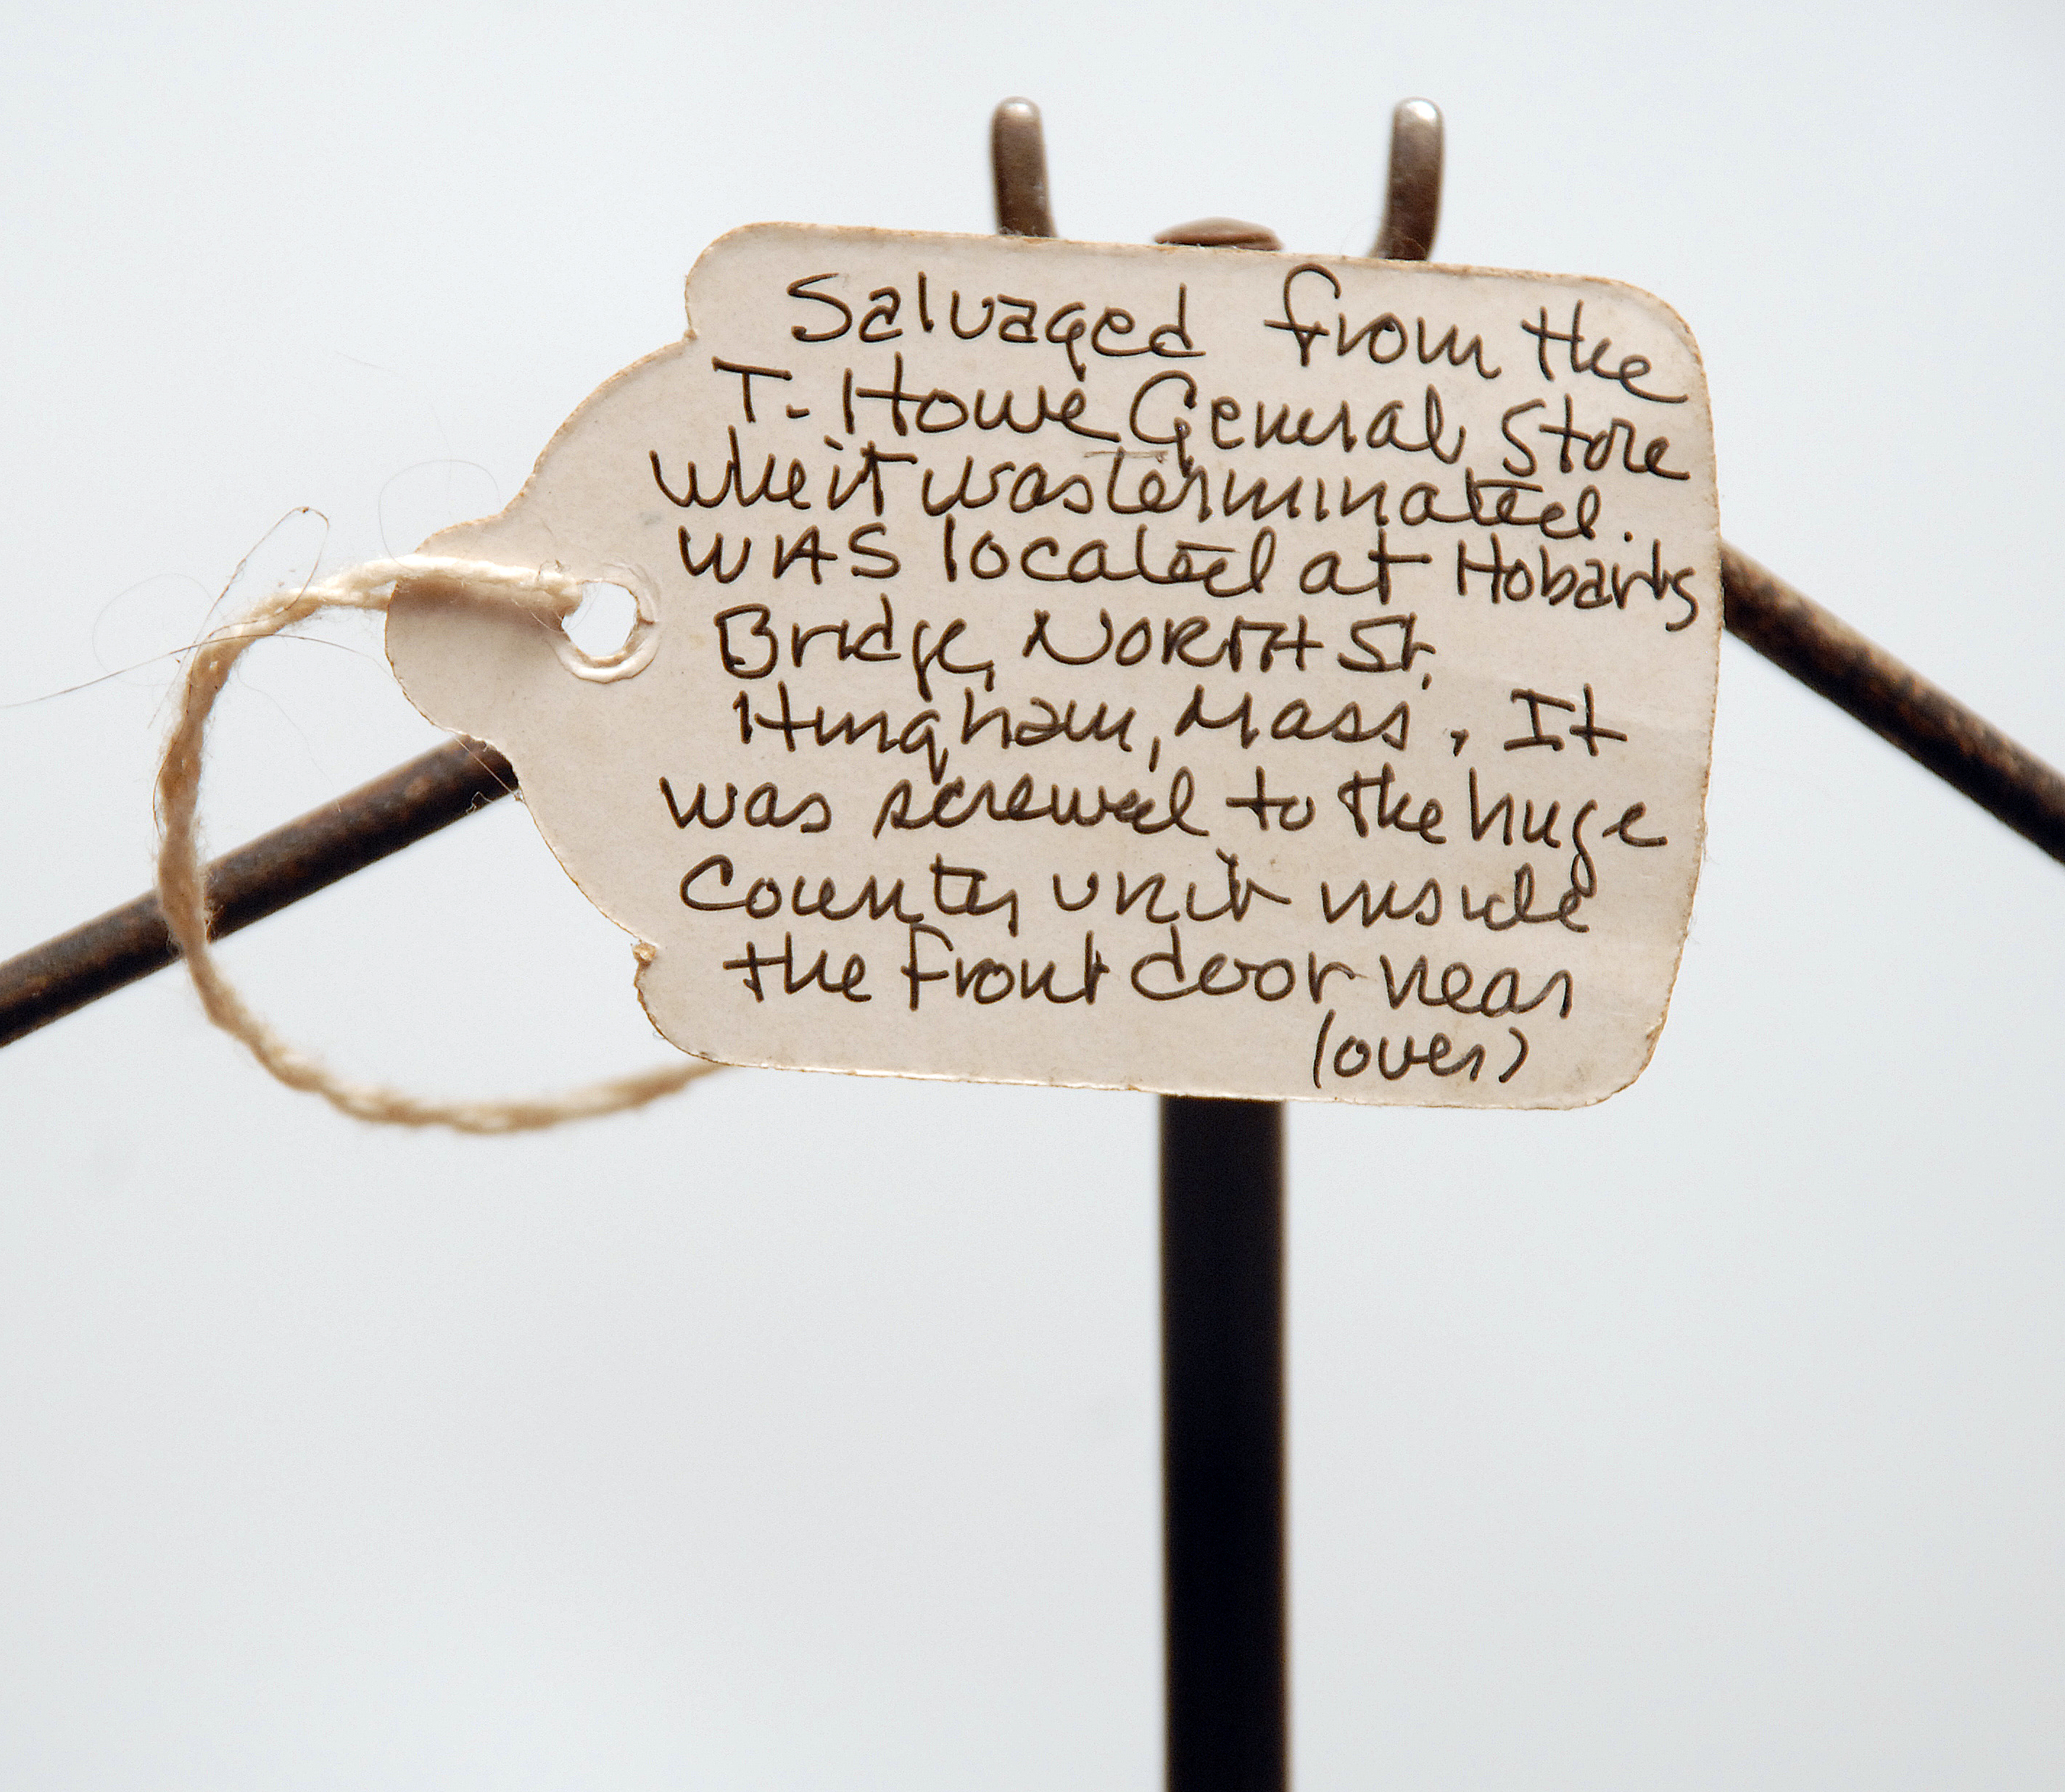 Salvaged from the
T. Howe General Store
whe it was terminated.
WAS located at Hobarts
Bridge, NORTH St.
Hingham, Mass. It
was screwed to the huge
Counter unit inside
the front door near
(over)